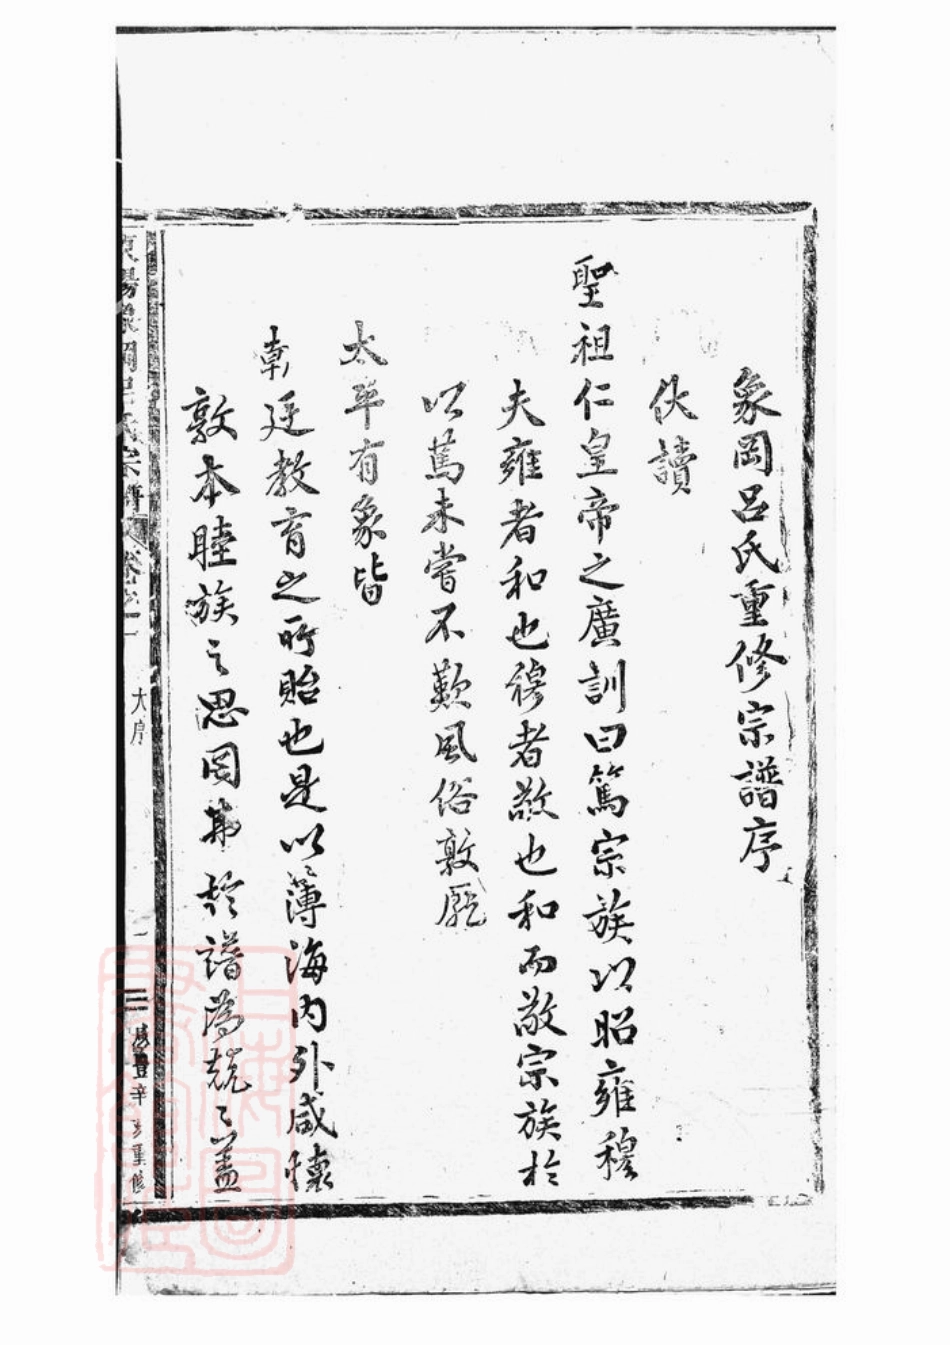 象岡呂氏重修宗譜序
伏讀
聖祖仁皇帝之廣訓曰篤宗族以昭雍穆
夫雍者和也穆者敬也和而敬宗族於
以篤未嘗不歎風俗敦厖
太平有象皆
朝廷教育之所貽也是以薄海內外咸懷
敦本睦族之思罔弗於譜為兢〻蓋
東陽象岡呂氏宗譜 卷之一
大序
一
咸豐辛亥重修
上海圖書館藏